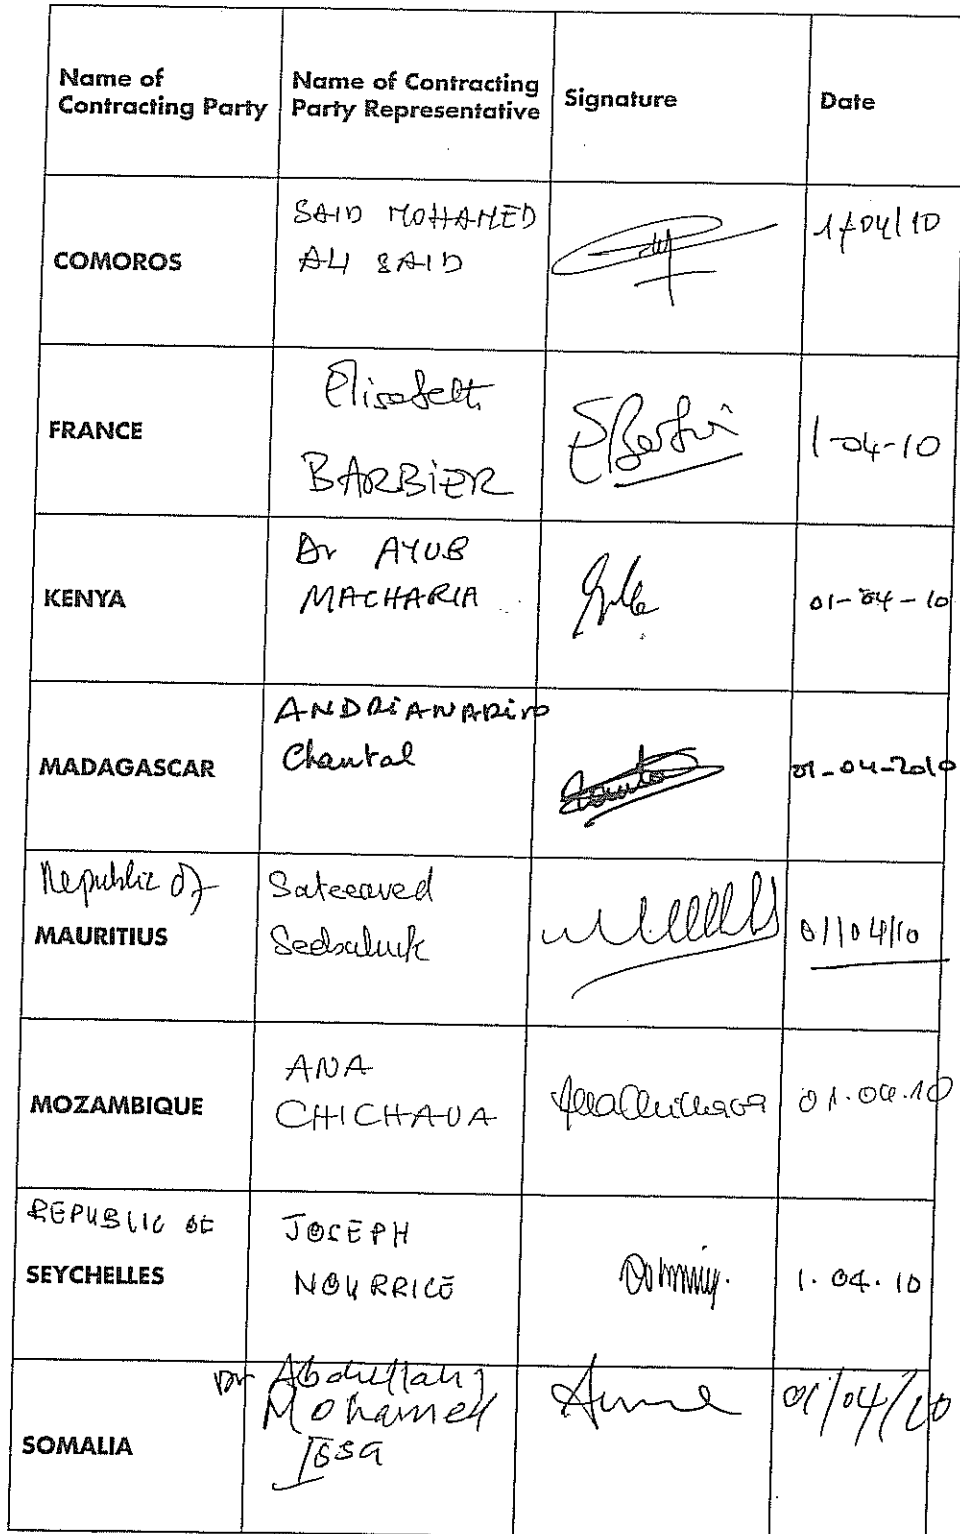 Name of
Contracting Party
Name of Contracting
Party Representative
Signature
Date
COMOROS
SAID MOHAMED
ALI SAID
1/04/10
FRANCE
Elisabeth
BARBIER
1-04-10
KENYA
Dr AYUB
MACHARIA
01-04-10
MADAGASCAR
ANDRIANARIVO
Chantal
01-04-2010
Republic of
MAURITIUS
01/04/10
MOZAMBIQUE
ANA
CHICHAVA
AnaChichava
01.04.10
REPUBLIC OF
SEYCHELLES
JOSEPH
NOURRICE
1.04.10
SOMALIA
Dr Abdullahi
Mohamed
Issa
01/04/10